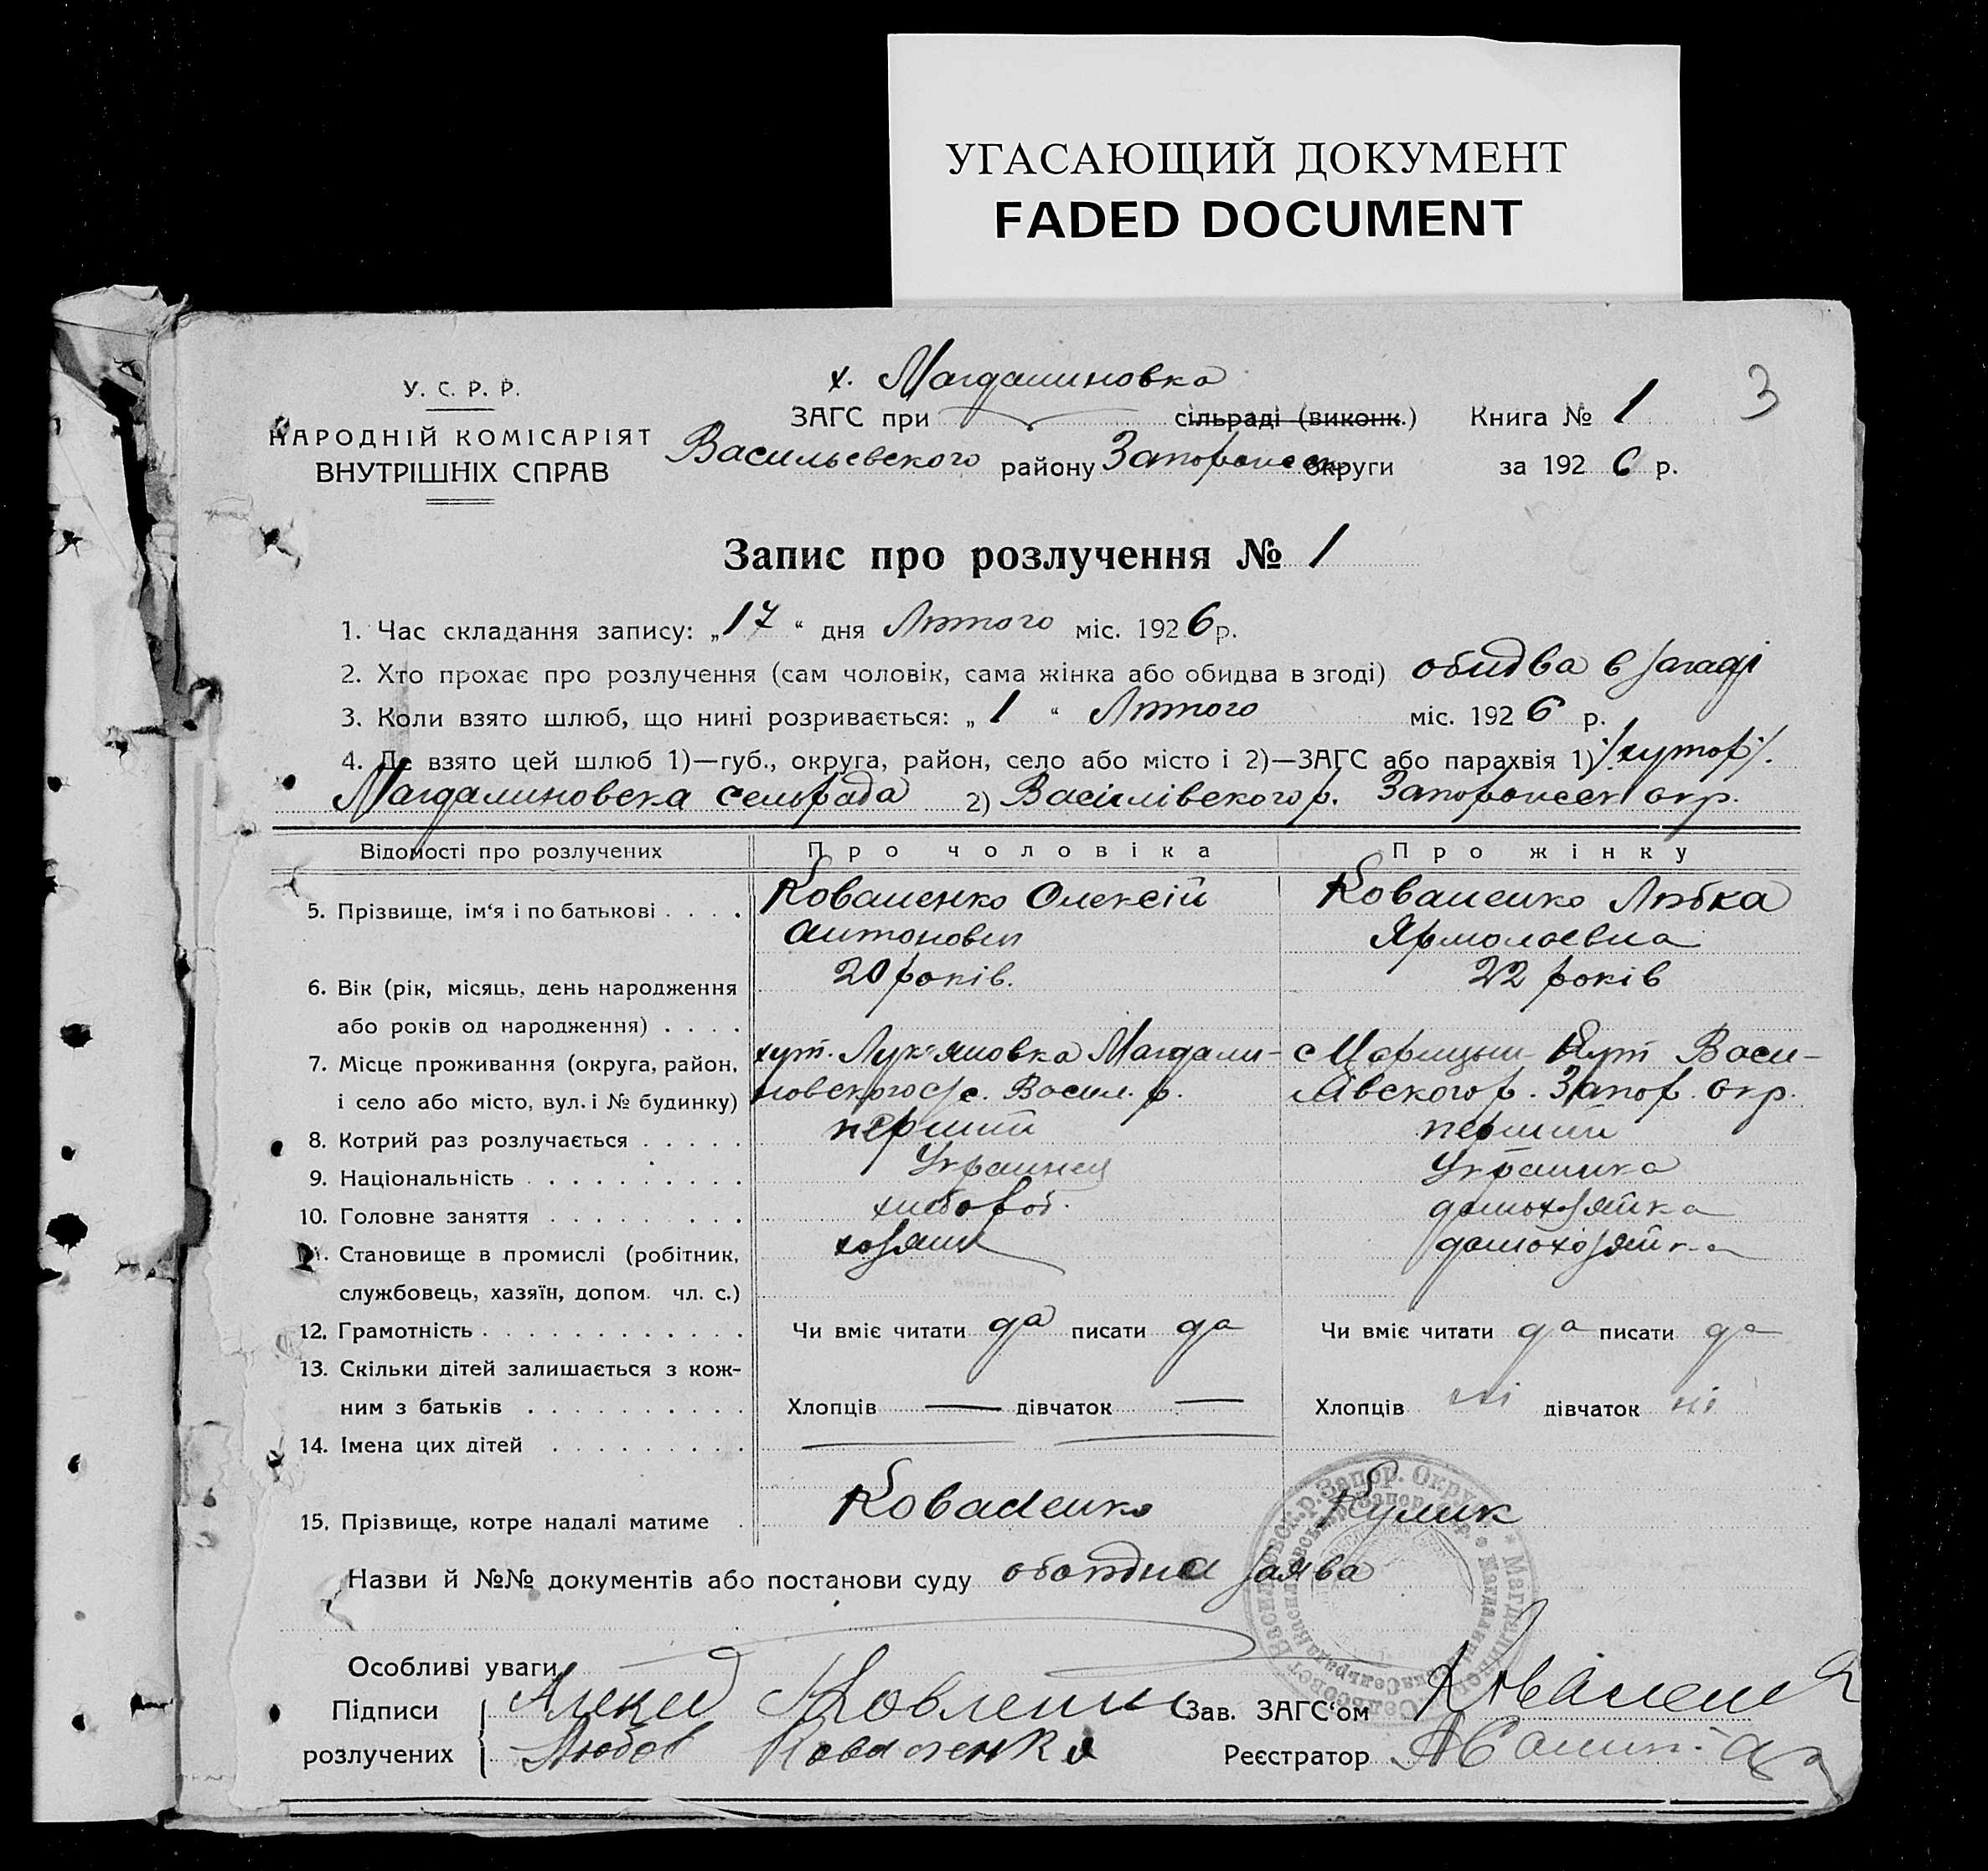 УГАСАЮЩИЙ ДОКУМЕНТ
FADED DOCUMENT
3
У. С. Р. Р.
НАРОДНІЙ КОМІСАРІЯТ
ВНУТРІШНІХ СПРАВ
х. Магдалиновка
ЗАГС при сільраді (виконк.) Книга № 1
Васильевского району Запорожск округи за 1926 р.
Запис про розлучення № 1
1. Час складання запису: „17“ дня Лютого міс. 1926 р.
2. Хто прохає про розлучення (сам чоловік, сама жінка або обидва в згоді) обидва в
3. Коли взято шлюб, що нині розривається: „1“ Лютого міс. 1926 р.
4. Де взято цей шлюб 1)—губ., округа, район, село або місто і 2)—ЗАГС або парахвія 1) /хутор/.
Магдалиновска сельрада 2) Васілівского р. Запорожск окр.
Відомості про розлучених Про чоловіка Про жінку
5. Прізвище, ім‘я і по батькові . . . . Коваленко Олексій Коваленко Любка
Антонович Ярмолаевна
6. Вік (рік, місяць, день народження 20 років. 22 років
або років од народження) . . . .
7. Місце проживання (округа, район, хут. Лук‘яновка Магдали- с Царицын Кут Васи-
і село або місто, вул. і № будинку) новского с/с. Васил. р. лівского р. Запор. окр.
8. Котрий раз розлучається . . . . . перший перший
9. Національність . . . . . . . . . . Украинец Украинка
10. Головне заняття . . . . . . . . . хлібороб. домохозяйка
11. Становище в промислі (робітник, хозяин домохозяйка
службовець, хазяїн, допом. чл. с.)
12. Грамотність . . . . . . . . . . . . Чи вміє читати да писати да Чи вміє читати да писати да
13. Скільки дітей залишається з кож-
ним з батьків . . . . . . . . . . Хлопців — дівчаток — Хлопців ні дівчаток ні
14. Імена цих дітей . . . . . . . . .
15. Прізвище, котре надалі матиме . Коваленко Кулик
Назви й №№ документів або постанови суду обопідна заява
Особливі уваги
Підписи Коваленко Зав. ЗАГС‘ом Коваленко
розлучених Любов Коваленко Реєстратор